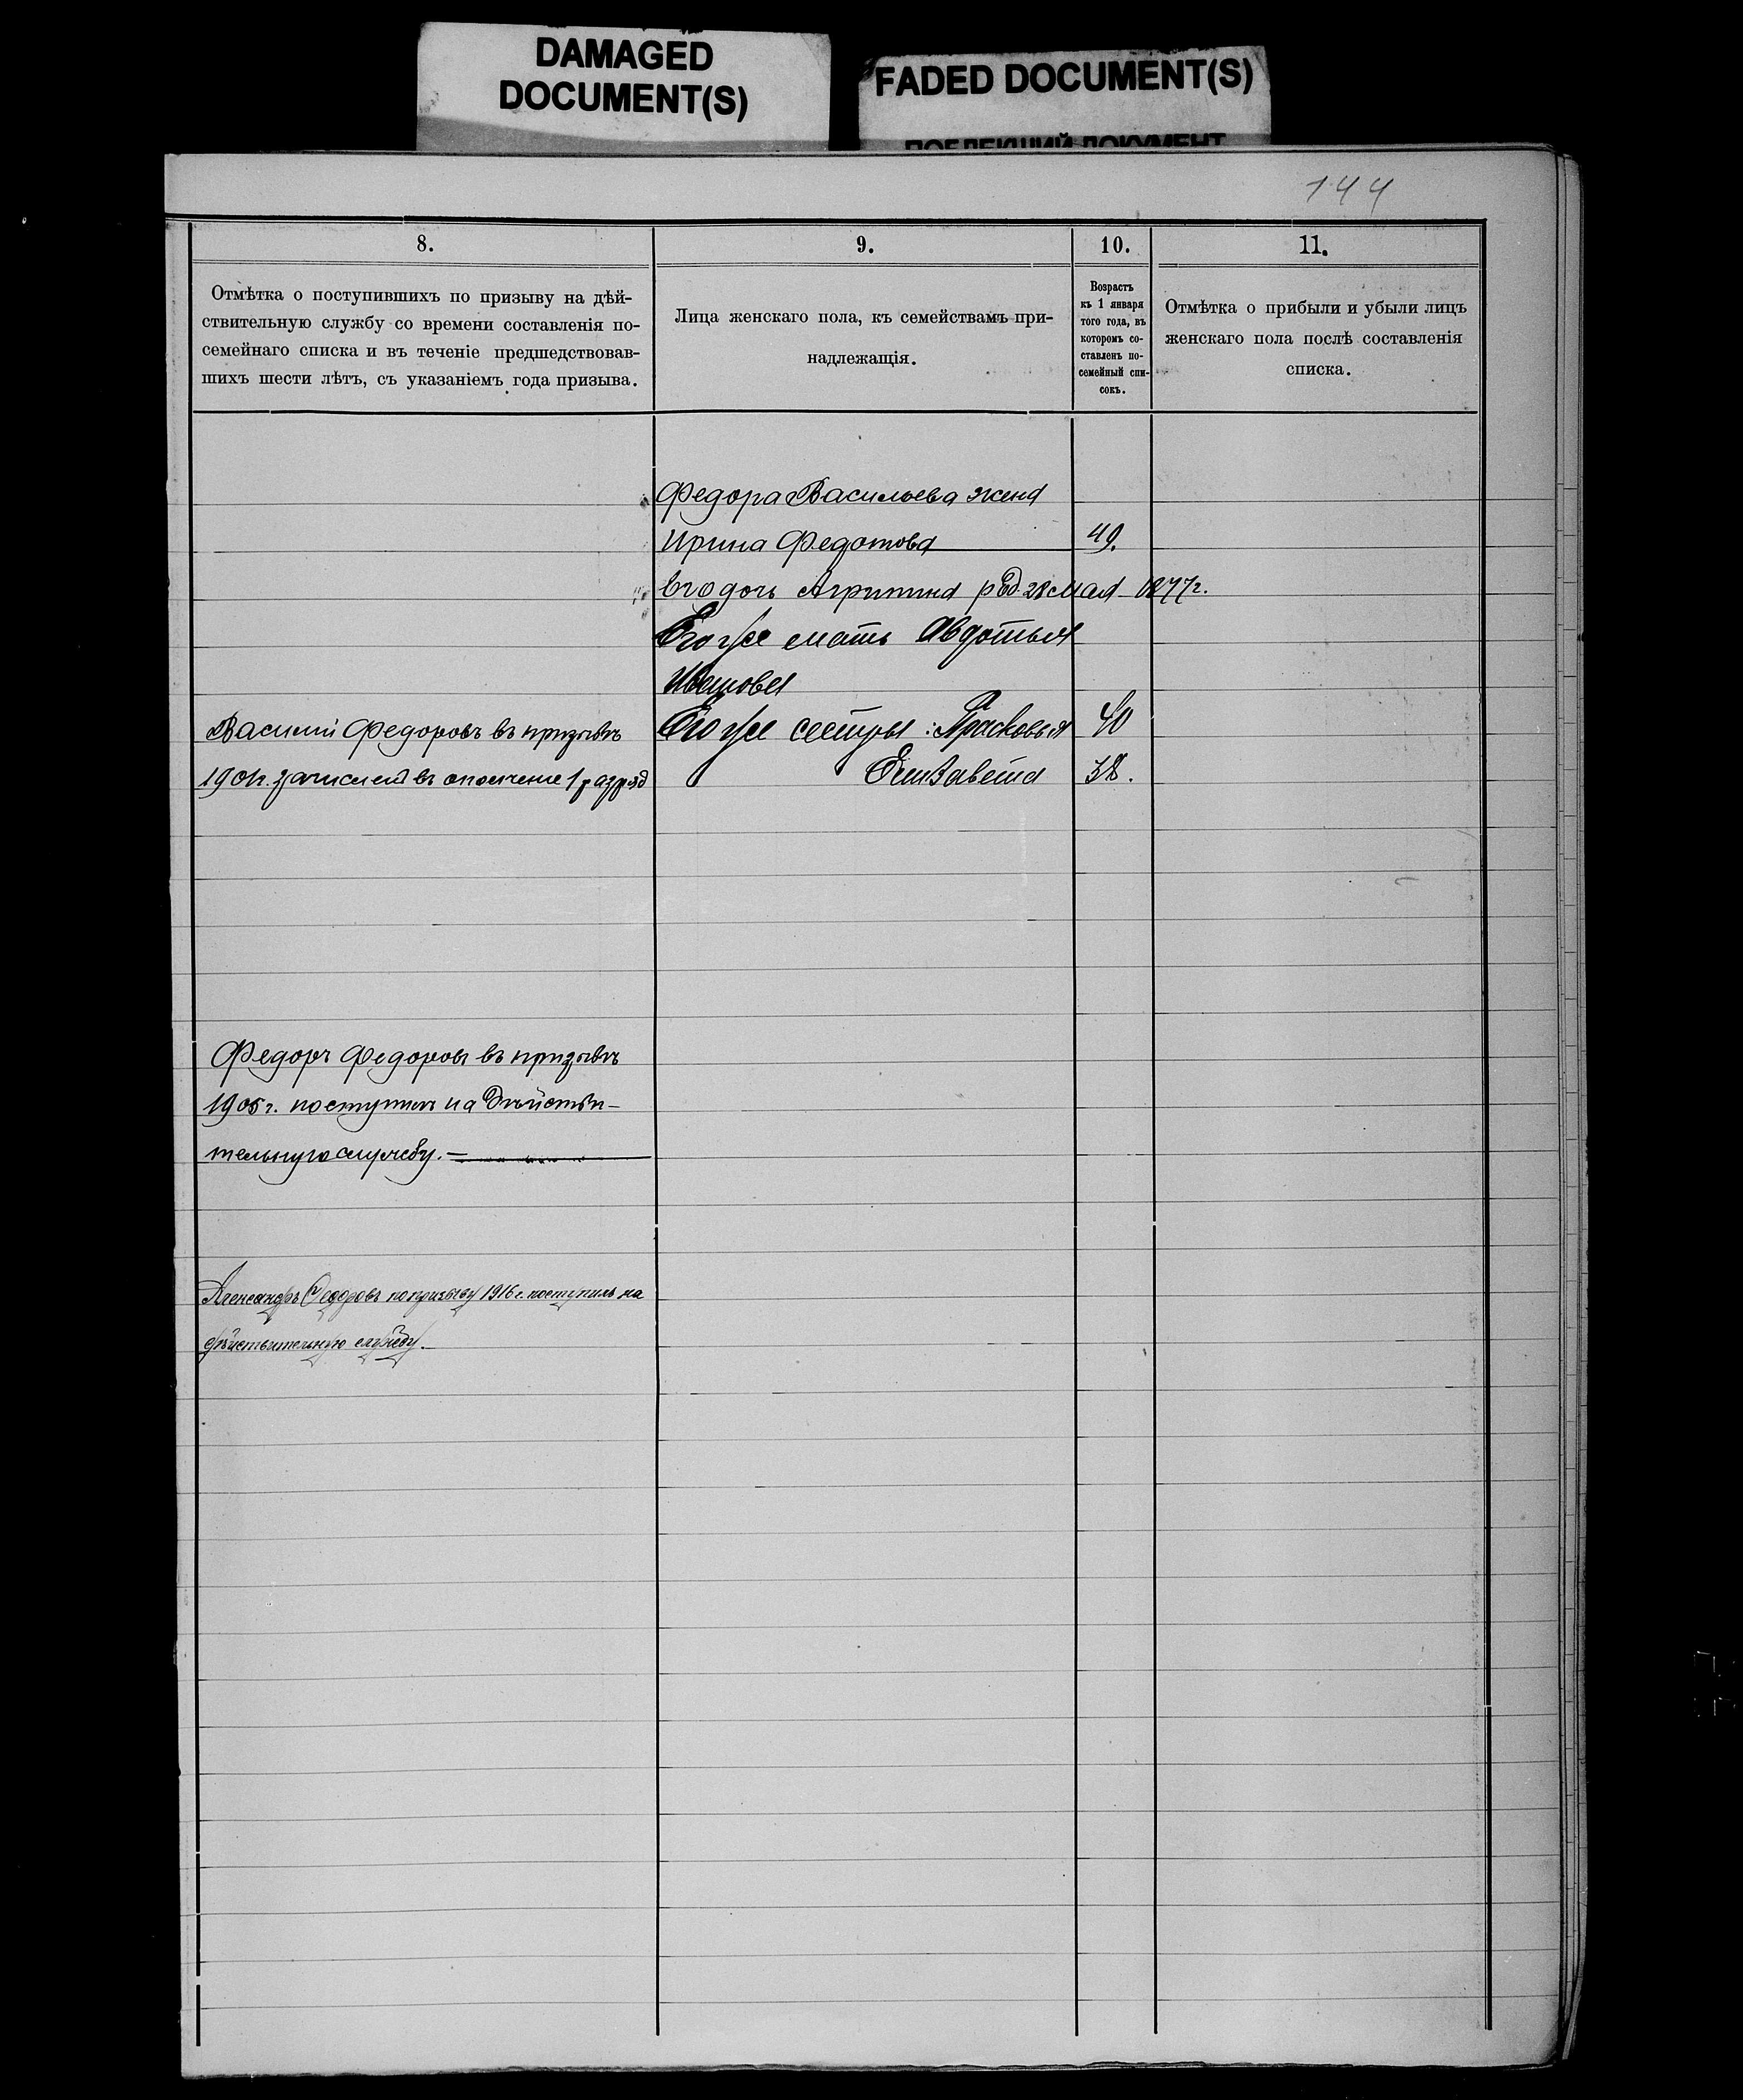 DAMAGED
DOCUMENT(S)
FADED DOCUMENT(S)
ПОБЛЕКШИЙ ДОКУМЕНТ
144
8.
9.
10.
11.
Отмѣтка о поступившихъ по призыву на дѣй-
ствительную службу со времени составленія по-
семейнаго списка и въ теченіе предшедствовав-
шихъ шести лѣтъ, съ указаніемъ года призыва.
Лица женскаго пола, къ семействамъ при-
надлежащія.
Возрастъ
къ 1 января
того года, въ
которомъ со-
ставленъ по-
семейный спи-
сокъ.
Отмѣтка о прибыли и убыли лицъ
женскаго пола послѣ составленія
списка.
Федора Васильева жена
Ирина Федотова 49.
Его дочь Агрипина род. 28 мая 1877 г.
Его же мать Авдотья
Иванова
Его же сестры: Прасковья 40
Елизавета 38.
Василий Федоровъ въ призывъ
1901 г. зачисленъ въ ополченіе 1 разряд
Федоръ Федоровъ въ призывъ
1905 г. поступилъ на дѣйстви-
тельную службу. —
Александръ Федоровъ по призыву 1916 г. поступилъ на
дѣйствительную службу. —